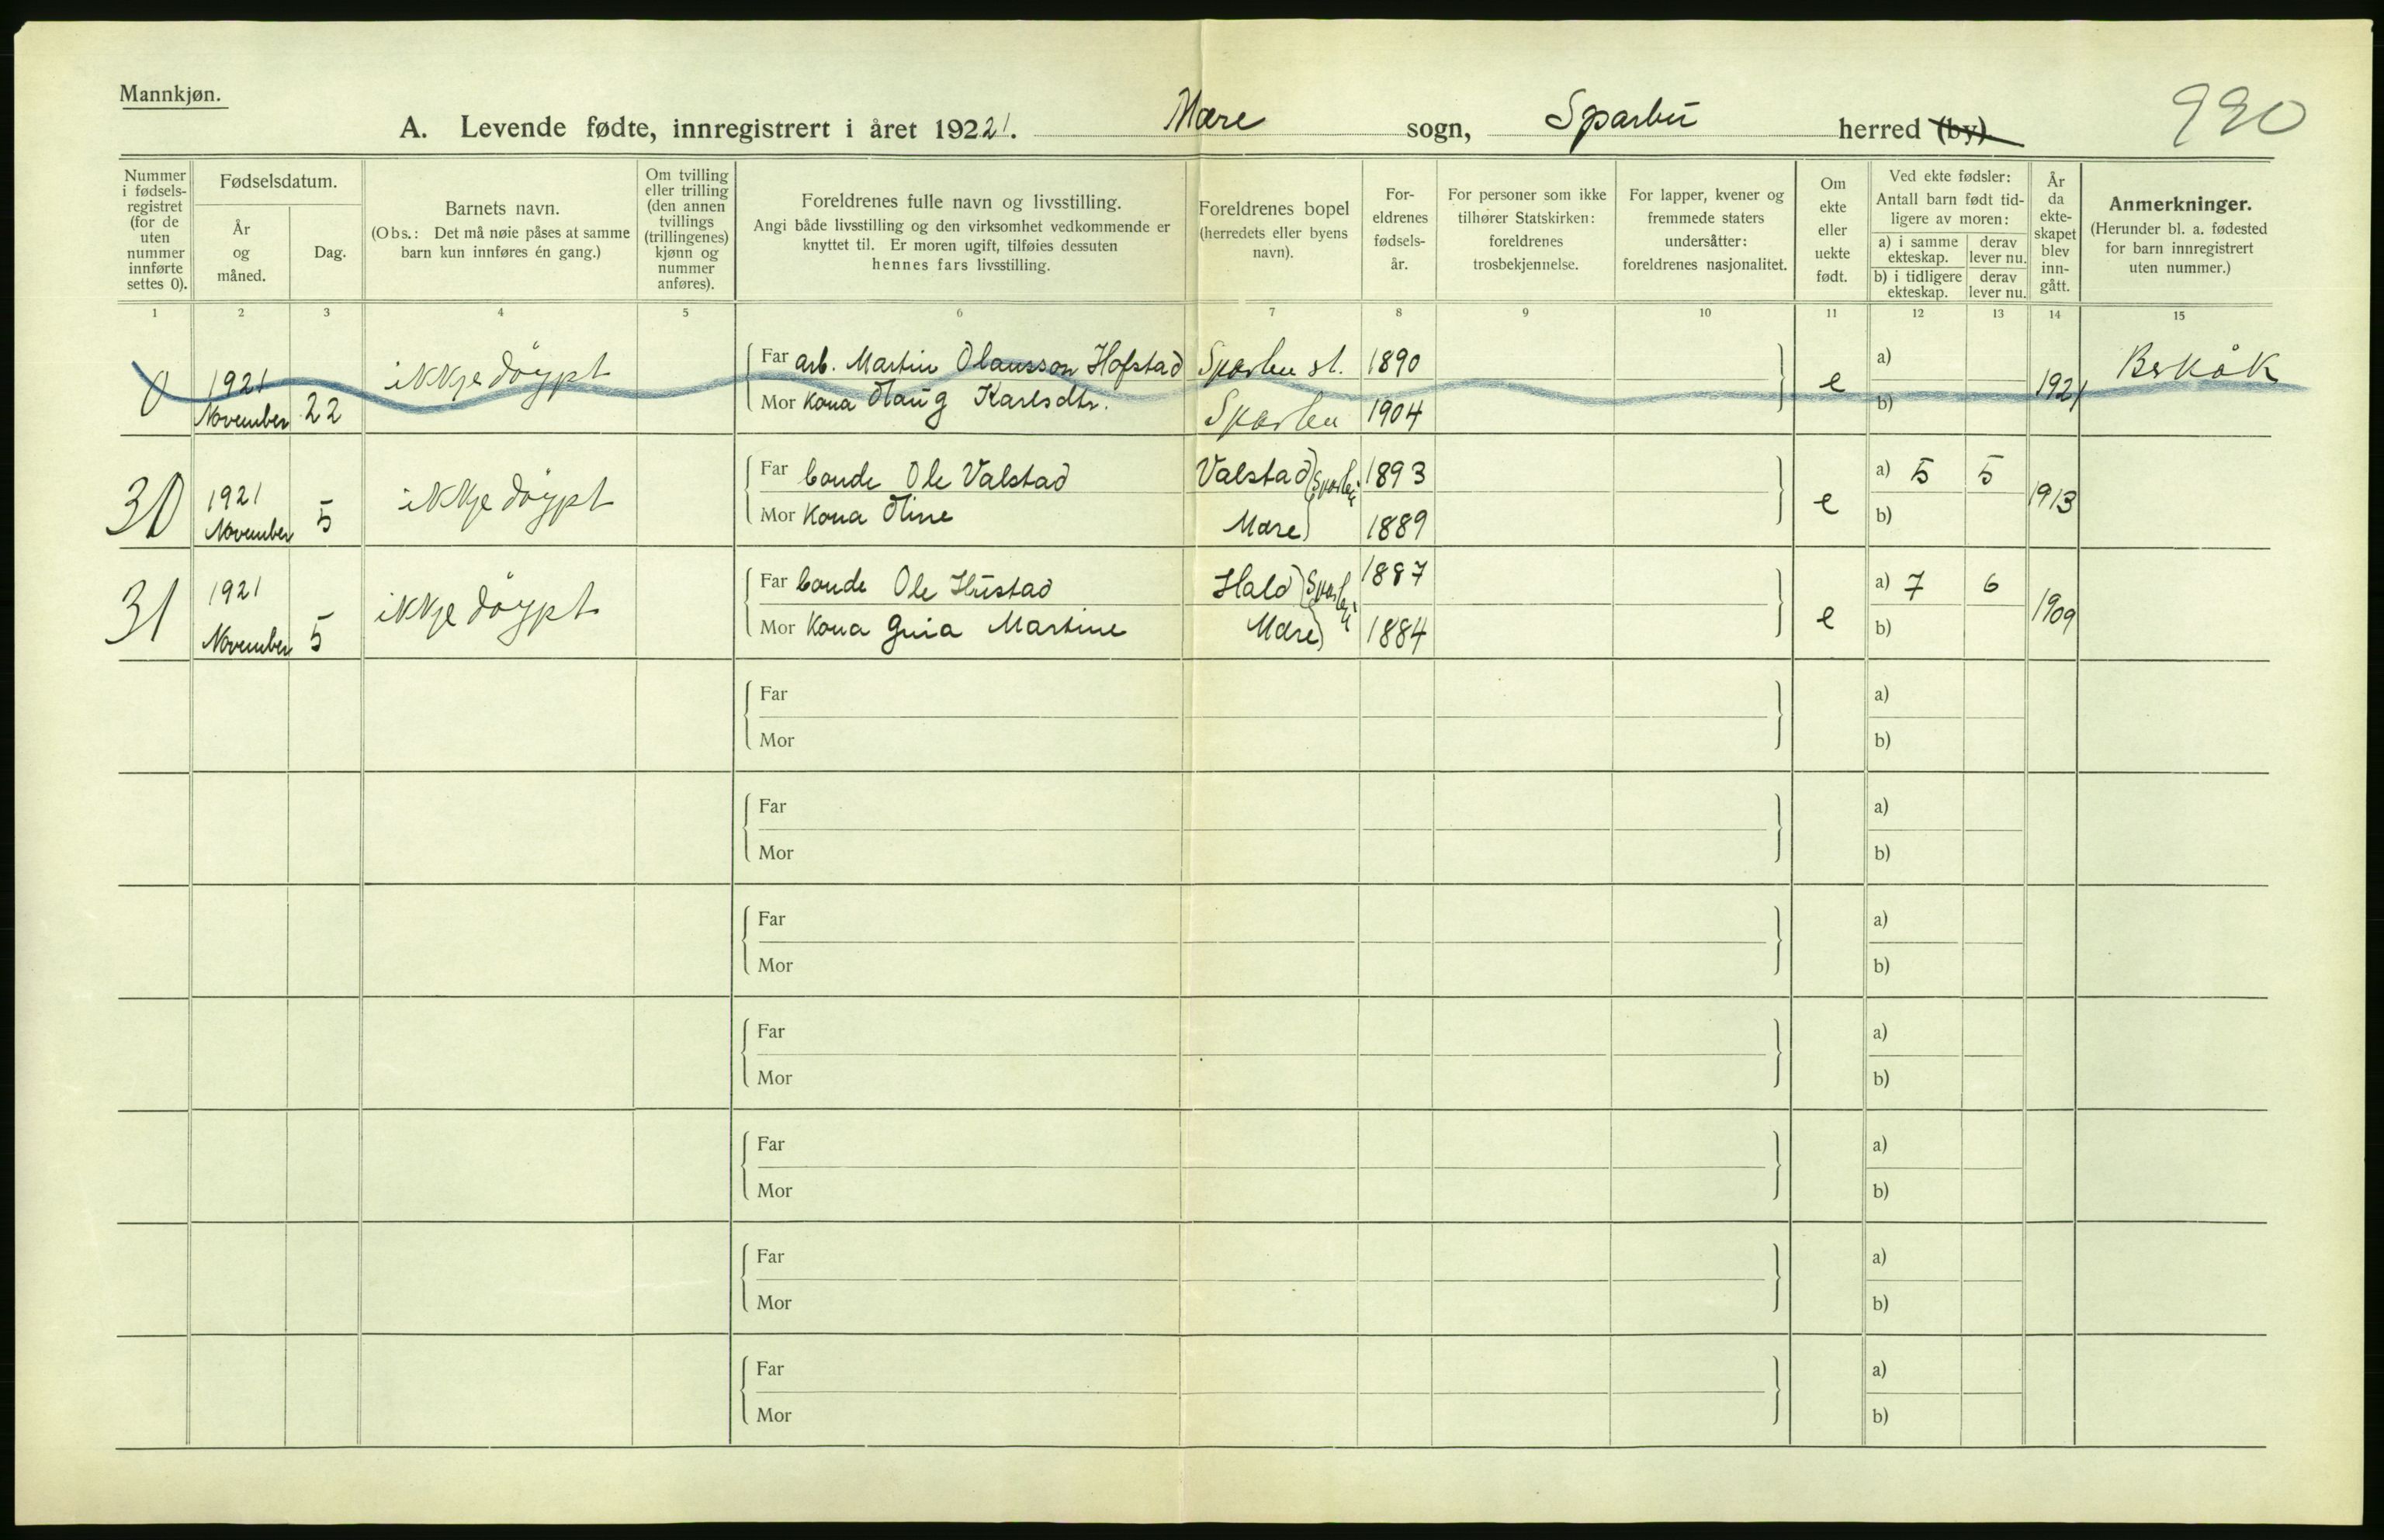 Mannkjøn.
A. Levende fødte, innregistrert i året 1921. Mære sogn, Sparbu herred (by)
990
Nummer i fødsels-registret (for de uten nummer innførte settes 0).
Fødselsdatum.
År og måned.
Dag.
Barnets navn.
(Obs.: Det må nøie påses at samme barn kun innføres én gang.)
Om tvilling eller trilling (den annen tvillings (trillingenes) kjønn og nummer anføres).
Foreldrenes fulle navn og livsstilling.
Angi både livsstilling og den virksomhet vedkommende er knyttet til. Er moren ugift, tilføies dessuten hennes fars livsstilling.
Foreldrenes bopel (herredets eller byens navn).
For-eldrenes fødsels-år.
For personer som ikke tilhører Statskirken: foreldrenes trosbekjennelse.
For lapper, kvener og fremmede staters undersåtter: foreldrenes nasjonalitet.
Om ekte eller uekte født.
Ved ekte fødsler:
Antall barn født tid-ligere av moren:
a) i samme ekteskap.
derav lever nu.
b) i tidligere ekteskap.
derav lever nu.
År da ekte-skapet blev inn-gått.
Anmerkninger.
(Herunder bl. a. fødested for barn innregistrert uten nummer.)
1 2 3 4 5 6 7 8 9 10 11 12 13 14 15
0 1921 November 22 ikkje döypt
Far arb. Martin Olausson Hofstad Sparbu st. 1890
Mor Kona Olaug Karlsdtr. Sparbu 1904
e a) b) 1921 Berkåk
30 1921 November 5 ikkje döypt
Far bonde Ole Valstad Valstad Sparbu 1893
Mor Kona Oline Mære 1889
e a) 5 5 b) 1913
31 1921 November 5 ikkje döypt
Far bonde Ole Hustad Hald Sparbu 1887
Mor Kona Martine Mære 1884
e a) 7 6 b) 1909
Far a)
Mor b)
Far a)
Mor b)
Far a)
Mor b)
Far a)
Mor b)
Far a)
Mor b)
Far a)
Mor b)
Far a)
Mor b)